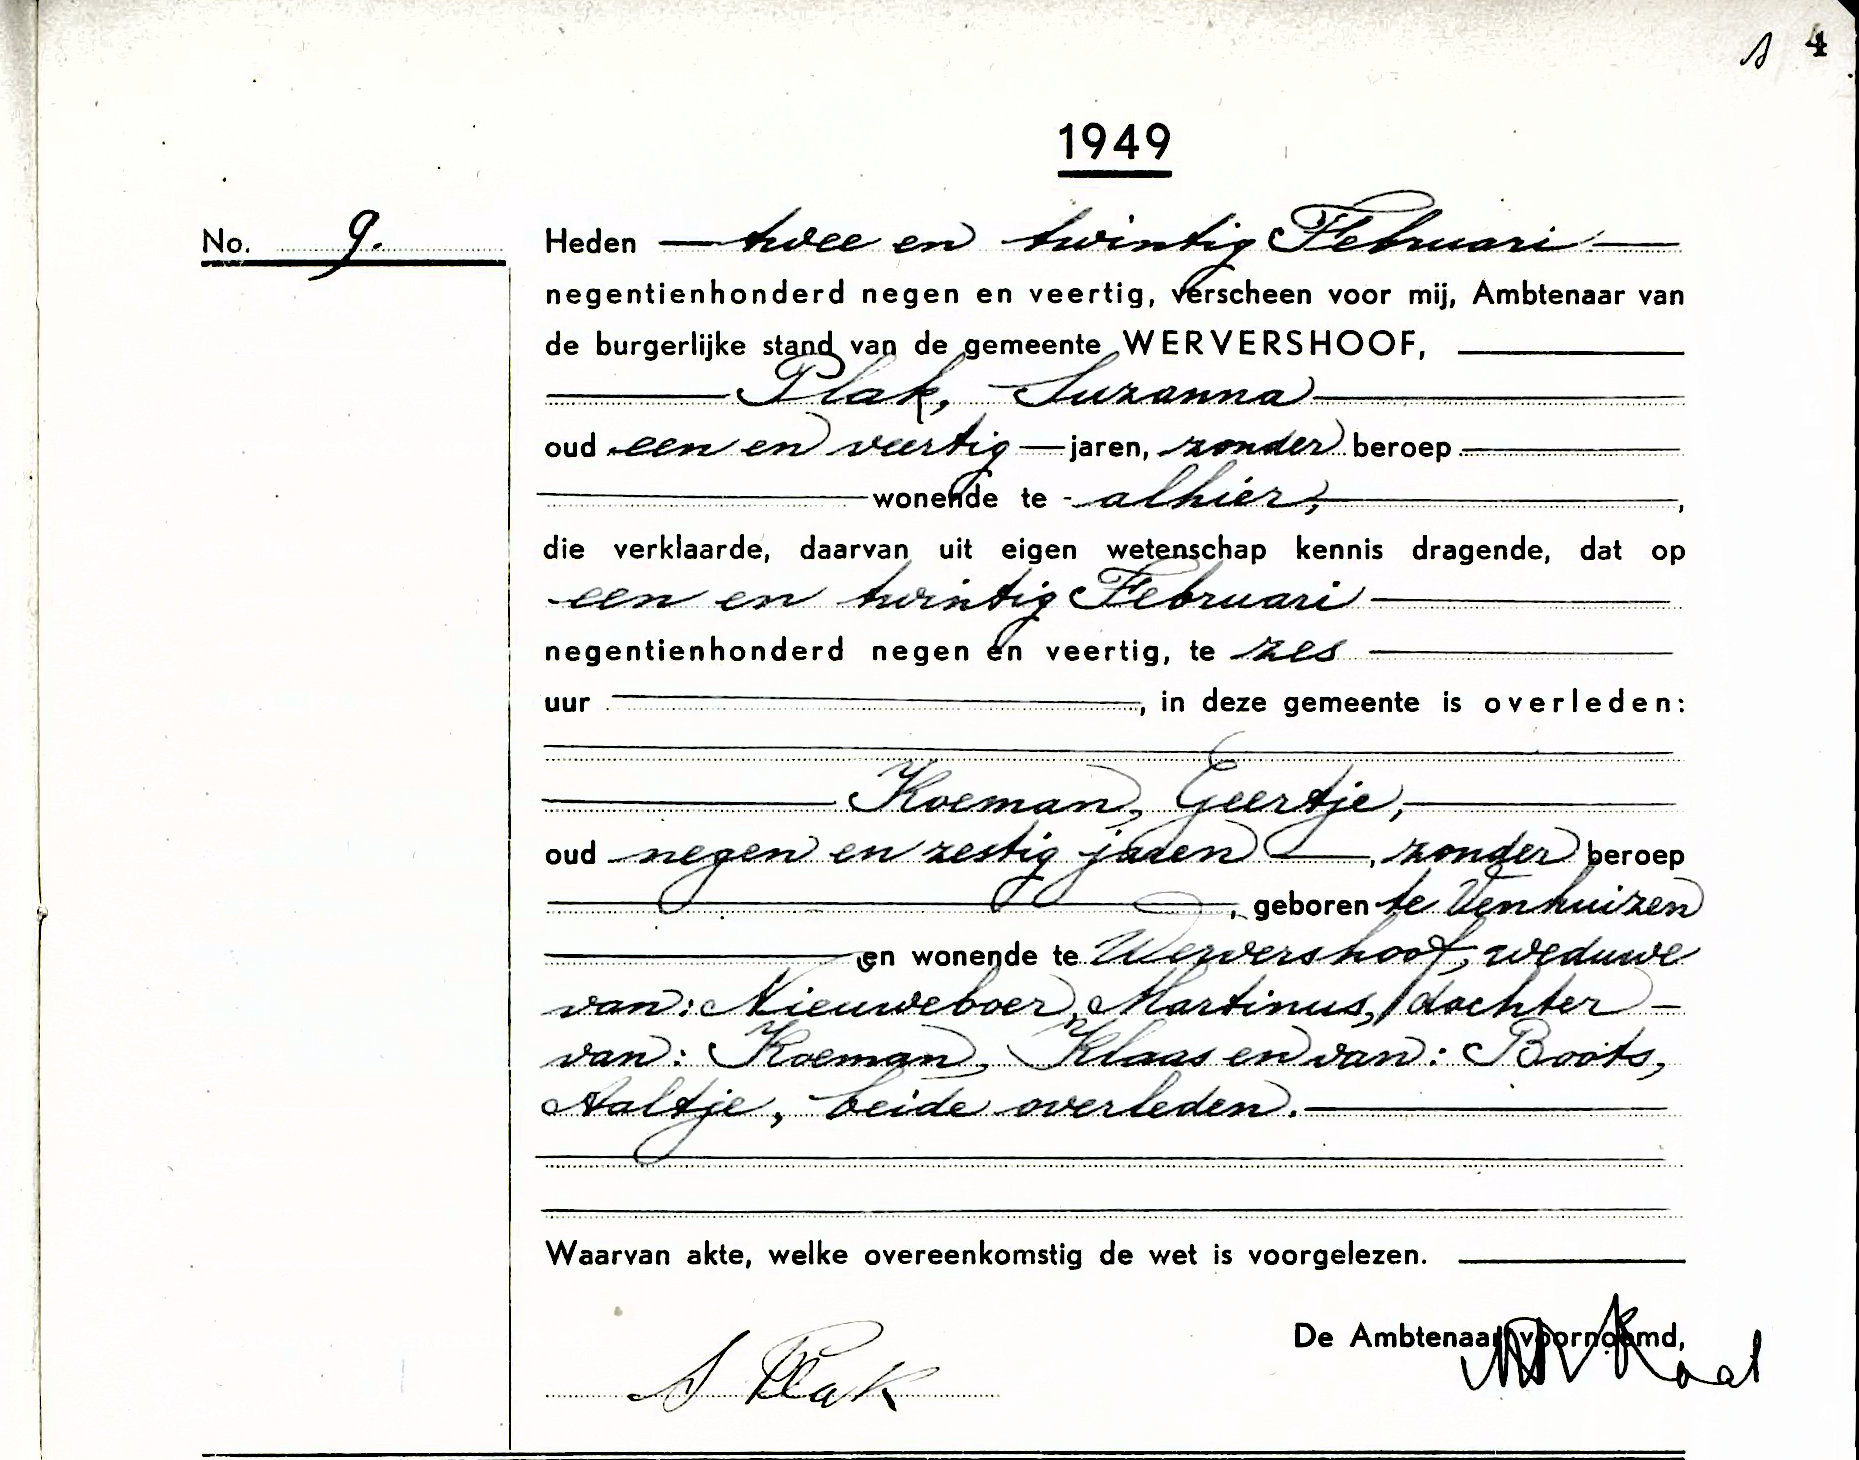 s 4
1949
No. 9.
Heden twee en twintig Februari
negentienhonderd negen en veertig, verscheen voor mij, Ambtenaar van
de burgerlijke stand van de gemeente WERVERSHOOF,
Plak, Suzanna
oud een en veertig jaren, zonder beroep
wonende te alhier,
die verklaarde, daarvan uit eigen wetenschap kennis dragende, dat op
een en twintig Februari
negentienhonderd negen en veertig, te zes
uur , in deze gemeente is overleden:
Koeman, Geertje,
oud negen en zestig jaren , zonder beroep
, geboren te Venhuizen
en wonende te Wervershoof, weduwe
van: Nieuweboer, Martinus, dochter
van: Koeman, Klaas en van: Boots,
Aaltje, beide overleden.
Waarvan akte, welke overeenkomstig de wet is voorgelezen.
De Ambtenaar voornoemd,
S Plak